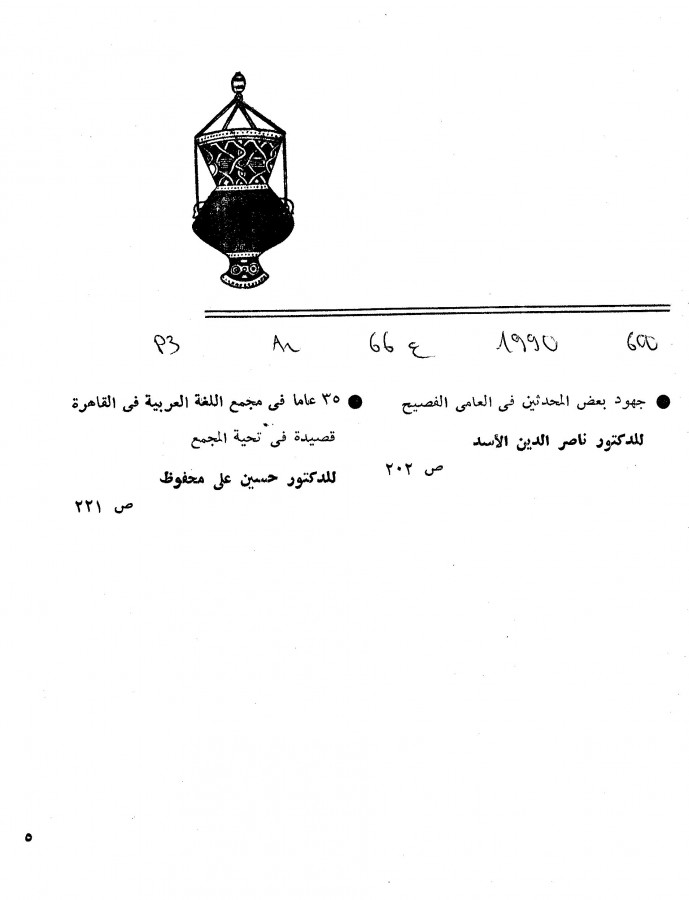 600 1990 66 ع Ar P3
● جهود بعض المحدثين فى العامى الفصيح
للدكتور ناصر الدين الأسد
ص ٢٠٢
● ٣٥ عاما فى مجمع اللغة العربية فى القاهرة
قصيدة فى تحية المجمع
للدكتور حسين على محفوظ
ص ٢٢١
٥